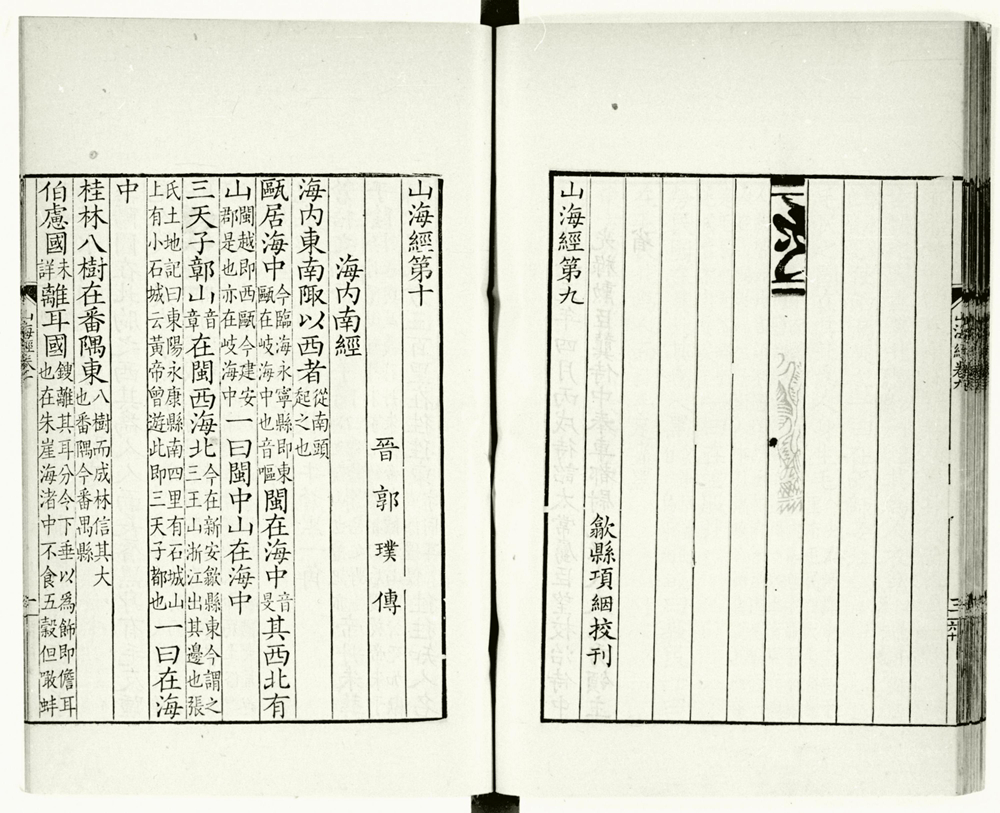 山海經卷九
歙縣項絪挍刊
山海經第九
山海經第十
晉郭璞傳
海内南經
海内東南陬以西者從南頭起之也
甌居海中今臨海永寧縣即東甌在岐海中也音嘔閩在海中音旻其西北有
山閩越即西甌今建安郡是也亦在岐海中一曰閩中山在海中
三天子鄣山音章在閩西海北今在新安歙縣東今謂之三王山浙江出其邊也張
氏土地記曰東陽永康縣南四里有石城山上有小石城云黃帝曾遊此即三天子都也一曰在海
中
桂林八樹在番隅東八樹而成林信其大也番隅今番禺縣
伯慮國未詳離耳國鎪離其耳分令下垂以爲飾即儋耳也在朱崖海渚中不食五穀但噉蚌
山海經卷